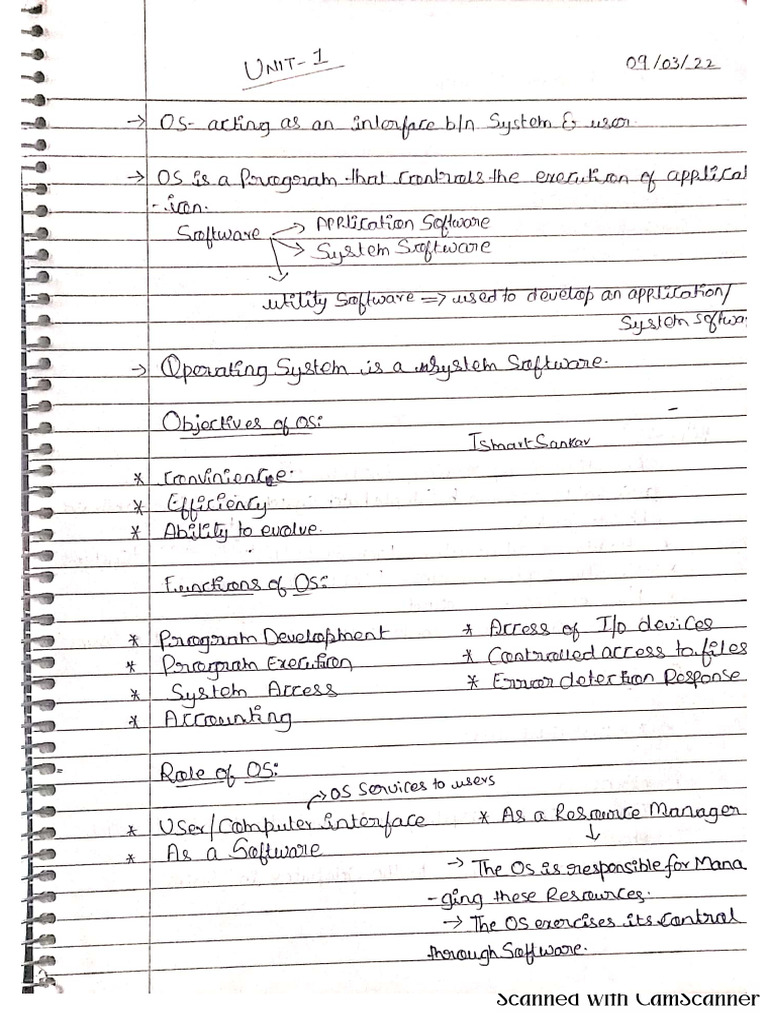 UNIT-1
09/03/22
→ OS- acting as an interface b/n System & user.
→ OS is a Program that controls the execution of applicat
-ion.
Software → Application Software
→ System Software
↓
utility Software ⇒ used to develop an application/
System softwa
→ Operating System is a System Software.
Objectives of OS:
Ismart Sankar
* Convinience.
* Efficiency
* Ability to evolve.
Functions of OS:
* Program Development * Access of I/O devices
* Program Execution * Controlled access to files
* System Access * Error detection Response
* Accounting
Role of OS:
→ OS Services to users
* User/Computer interface * As a Resource Manager
* As a Software ↓
→ The OS is responsible for Mana
-ging these Resources.
→ The OS exercises its control
through Software.
Scanned with CamScanner